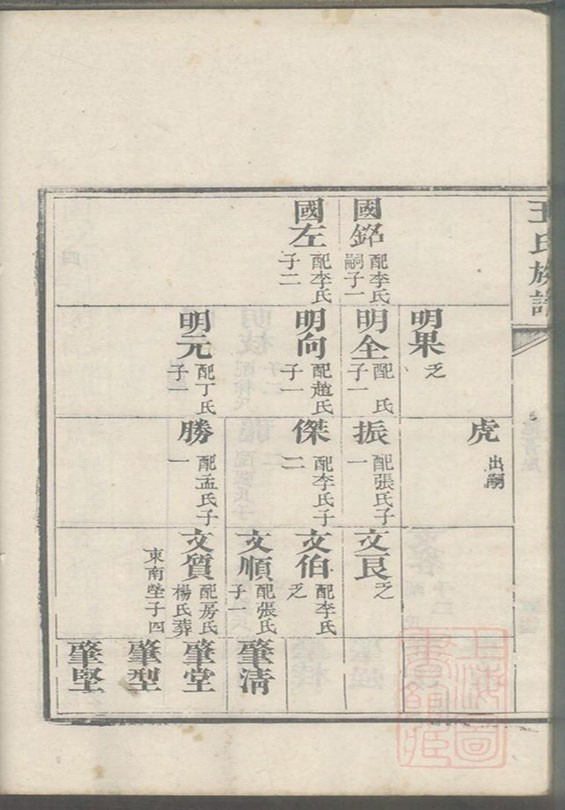 王氏族譜
國銘 配李氏
嗣子一
國左 配李氏
子二
明果 乏
明全 配 氏
子一
明向 配趙氏
子一
明元 配丁氏
子一
虎 出嗣
振 配張氏子
一
傑 配李氏子
二
勝 配孟氏子
一
文艮 乏
文伯 配李氏
乏
文順 配張氏
子一
文質 配房氏
楊氏葬
東南塋子四
肇清
肇堂
肇型
肇堅